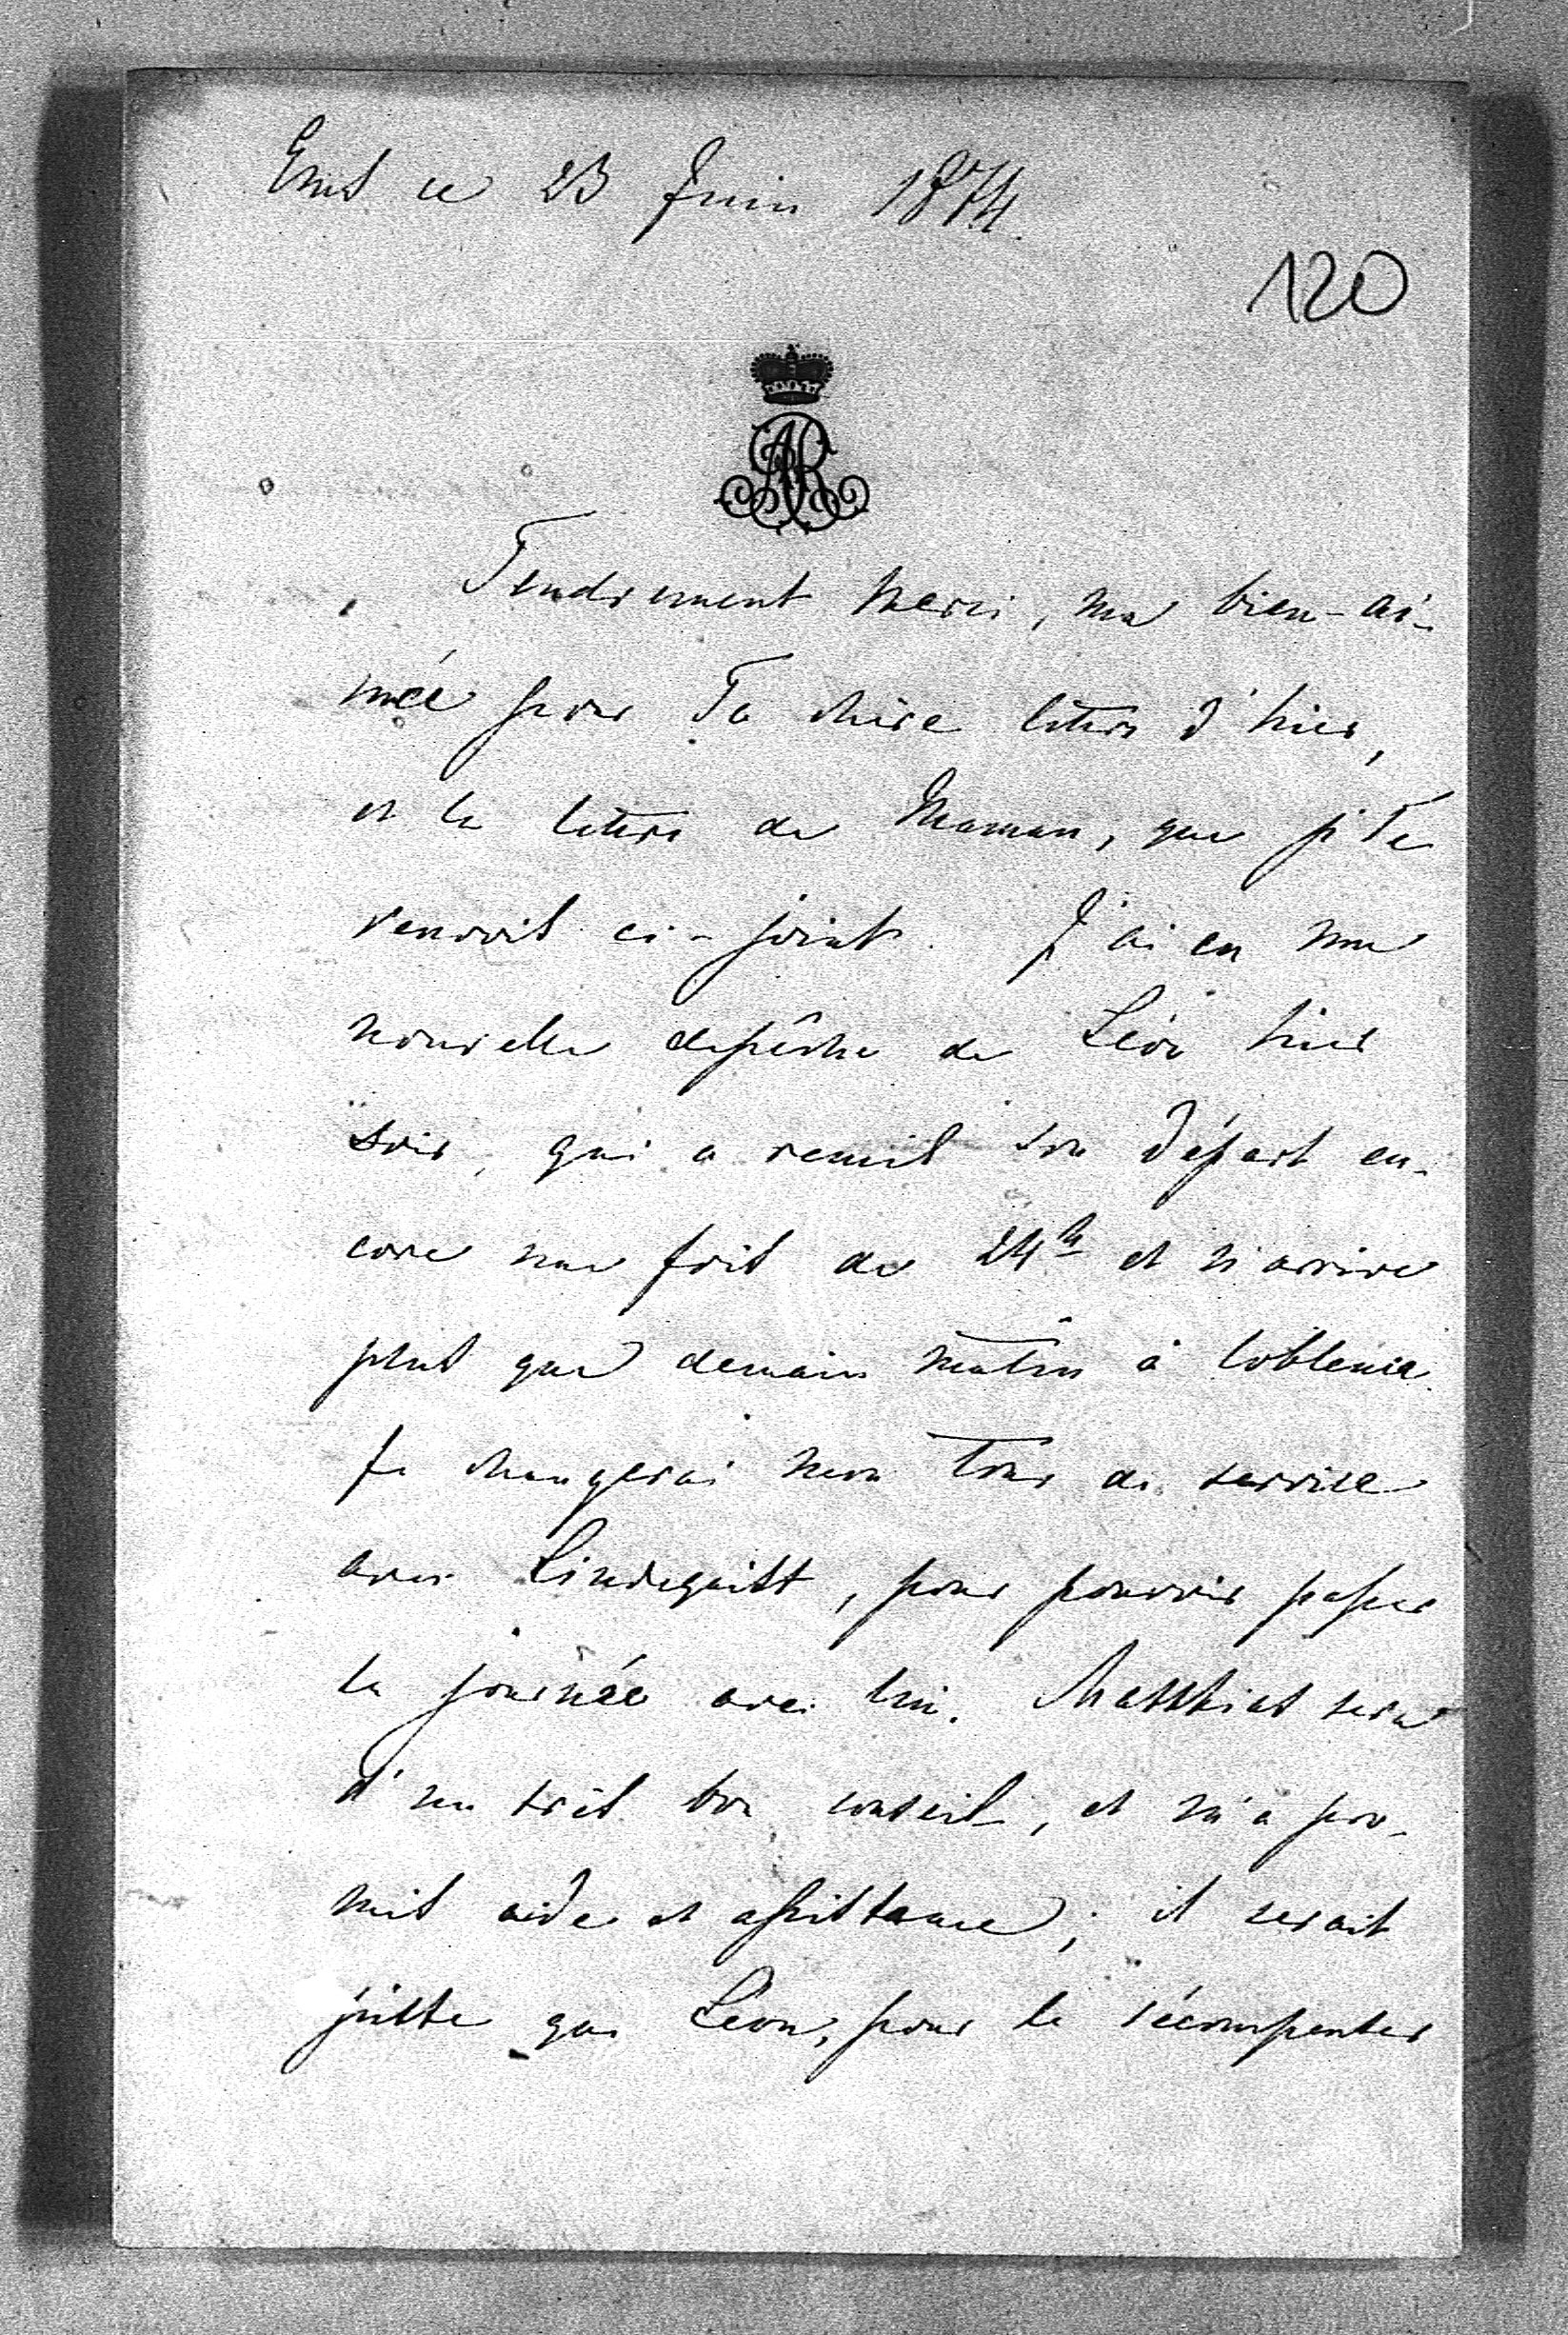 Ems ce 23 Juin 1874.
120
AR
Tendrement merci, ma bien-ai-
mée pour Ta chère lettre d'hier,
et la lettre de Maman, que j'Te
renvois ci-joint. J'ai eu une
nouvelle depêche de Léon hier
soir, qui a remis son départ en-
core une fois de 24h et n'arrive
plus que demain matin à Coblence.
Je changerai mon tour de service
avec Lindequist, pour pouvoir passer
la journée avec lui. Matthias sera
d'un très bon conseil, et m'a pro-
mis aide et assistance; il serait
juste que Léon, pour le récompenser